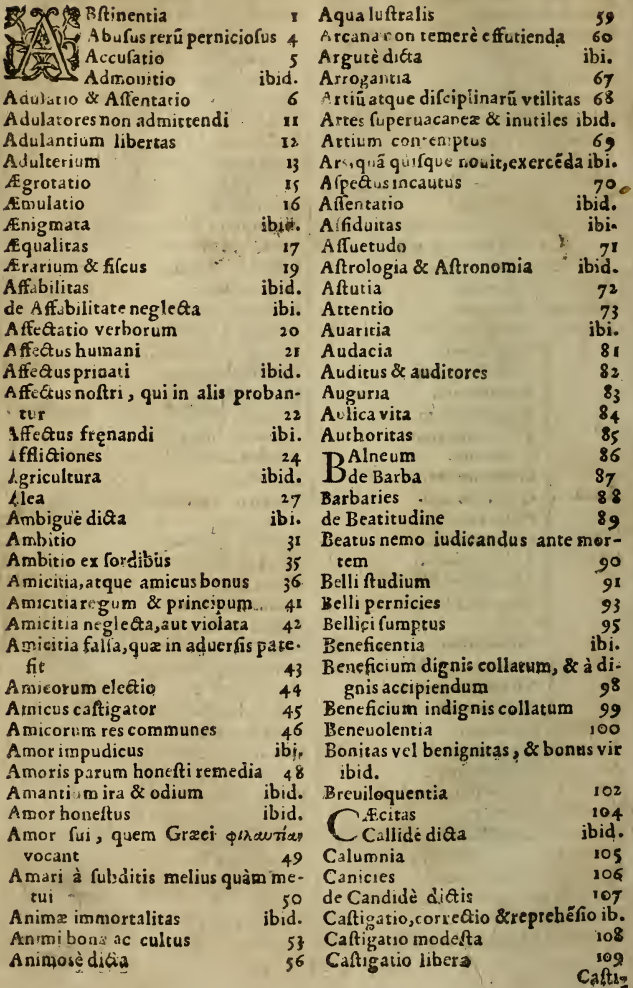 ABstinentia 1
Abusus rerū perniciosus 4
Accusatio 5
Admonitio ibid.
Adulatio & Assentatio 6
Adulatores non admittendi 11
Adulantium libertas 12
Adulterium 13
Ægrotatio 15
Æmulatio 16
Ænigmata ibid.
Æqualitas 17
Ærarium & fiscus 19
Affabilitas ibid.
de Affabilitate neglecta ibi.
Affectatio verborum 20
Affectus humani 21
Affectus priuati ibid.
Affectus nostri, qui in alis proban-
tur 22
Affectus fręnandi ibi.
Afflictiones 24
Agricultura ibid.
Alea 27
Ambiguè dicta ibi.
Ambitio 31
Ambitio ex sordibus 35
Amicitia, atque amicus bonus 36
Amicitia regum & principum. 41
Amicitia neglecta, aut violata 42
Amicitia falsa, quæ in aduersis pate-
fit 43
Amicorum electio 44
Amicus castigator 45
Amicorum res communes 46
Amor impudicus ibi.
Amoris parum honesti remedia 48
Amantium ira & odium ibid.
Amor honestus ibid.
Amor sui, quem Græci φιλαυτίαν
vocant 49
Amari à subditis melius quàm me-
tui 50
Animæ immortalitas ibid.
Animi bona ac cultus 53
Animosè dicta 56
Aqua lustralis 59
Arcana non temerè effutienda 60
Argutè dicta ibi.
Arrogantia 67
Artiū atque disciplinarū vtilitas 68
Artes superuacaneæ & inutiles ibid.
Artium contemptus 69
Ars, quā quisque nouit, exercēda ibi.
Aspectus incautus 70
Assentatio ibid.
Assiduitas ibi.
Assuetudo 71
Astrologia & Astronomia ibid.
Astutia 72
Attentio 73
Auaritia ibi.
Audacia 81
Auditus & auditores 82
Auguria 83
Aulica vita 84
Authoritas 85
BAlneum 86
de Barba 87
Barbaries 88
de Beatitudine 89
Beatus nemo iudicandus ante mor-
tem 90
Belli studium 91
Belli pernicies 93
Bellici sumptus 95
Beneficentia ibi.
Beneficium dignis collatum, & à di-
gnis accipiendum 98
Beneficium indignis collatum 99
Beneuolentia 100
Bonitas vel benignitas, & bonus vir
ibid.
Breuiloquentia 102
CÆcitas 104
Callidè dicta ibid.
Calumnia 105
Canicies 106
de Candidè dictis 107
Castigatio, correctio & reprehēsio ib.
Castigatio modesta 108
Castigatio libera 109
Casti-